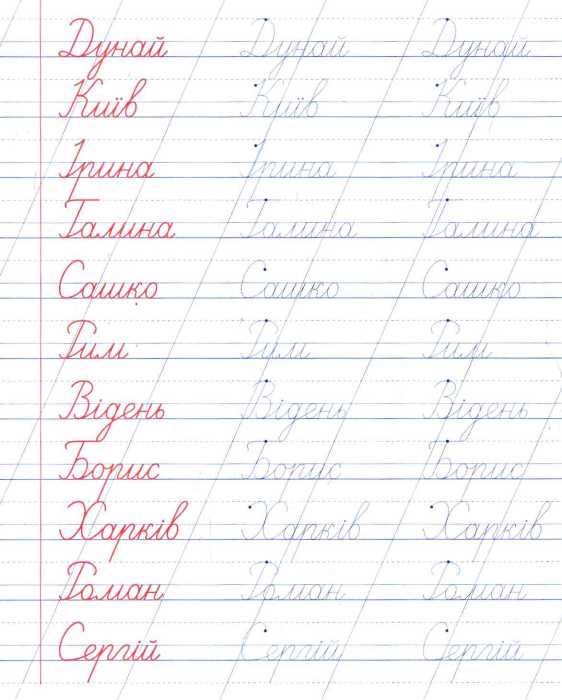 Дунай Дунай Дунай
Київ Київ Київ
Ірина Ірина Ірина
Галина Галина Галина
Сашко Сашко Сашко
Рим Рим Рим
Відень Відень Відень
Борис Борис Борис
Харків Харків Харків
Роман Роман Роман
Сергій Сергій Сергій